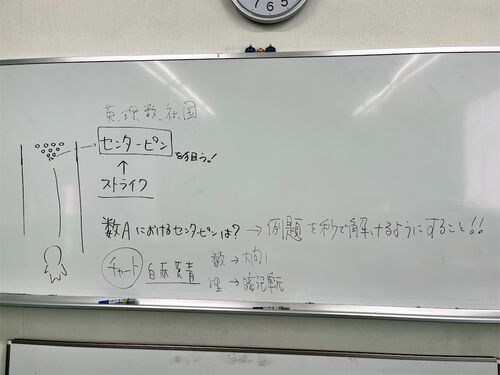 英.理.数.社.国
センターピン を狙う!
↑
ストライク
数Aにおけるセンターピンは? → 例題を秒で解けるようにすること!!
チャート 白赤黄青
数 → 大問1
理 → 暗記
7 6 5